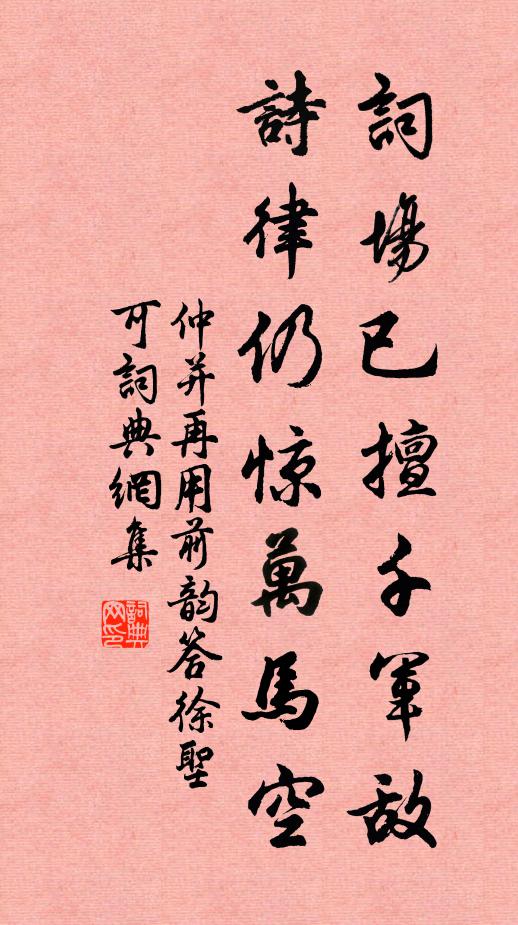 詞場已擅千軍敵
詩律仍惊萬馬空
仲并再用前韵答徐聖
可詞典網集
詞典网印